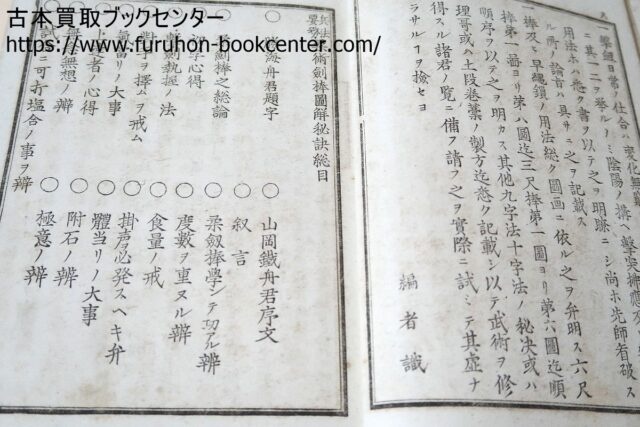 古本買取ブックセンター
https://www.furuhon-bookcenter.com/
用法本ハ悉ク書ヲ以テ之ヲ明瞭ニシ尚ホ先師有破ス
ル所ノ論旨ハ具サニ之ヲ記載ス
一棒及ヒ早繩鎖ノ用法總ク圖画ニ依ル之ヲ弁明ス六尺
棒第一圖ヨリ第八圖迄三尺棒第一圖ヨリ第六圖迄順
順序ヲ以テ之ヲ明カス其他九字法十字法ノ秘决或ハ
理哥或ハ土段巻藁ノ製方迄悉ク記載シ以テ武術ヲ修
得スル諸君ノ覧ニ備フ請フ之ヲ實際ニ試ミテ其虚ナ
ラサルヲ檢セヨ
編者識
術劍棒圖解秘訣総目
○ 海舟君題字
○ 山岡鐵舟君序文
○ 劍棒之總論
○ 叙言
○ 學心得
○ 柔劔棒學シテ功アル辨
劔執握ノ法
○ 度數ヲ重ヌル辨
對手ヲ擇ムヲ戒ム
○ 食量ノ戒
氣當リノ大事
○ 掛声必發スヘキ弁
○ 上達者ノ心得
○ 體当リノ大事
無想ノ辨
○ 附石ノ辨
ニ可打塩合ノ事ヲ辨
○ 極意ノ辨